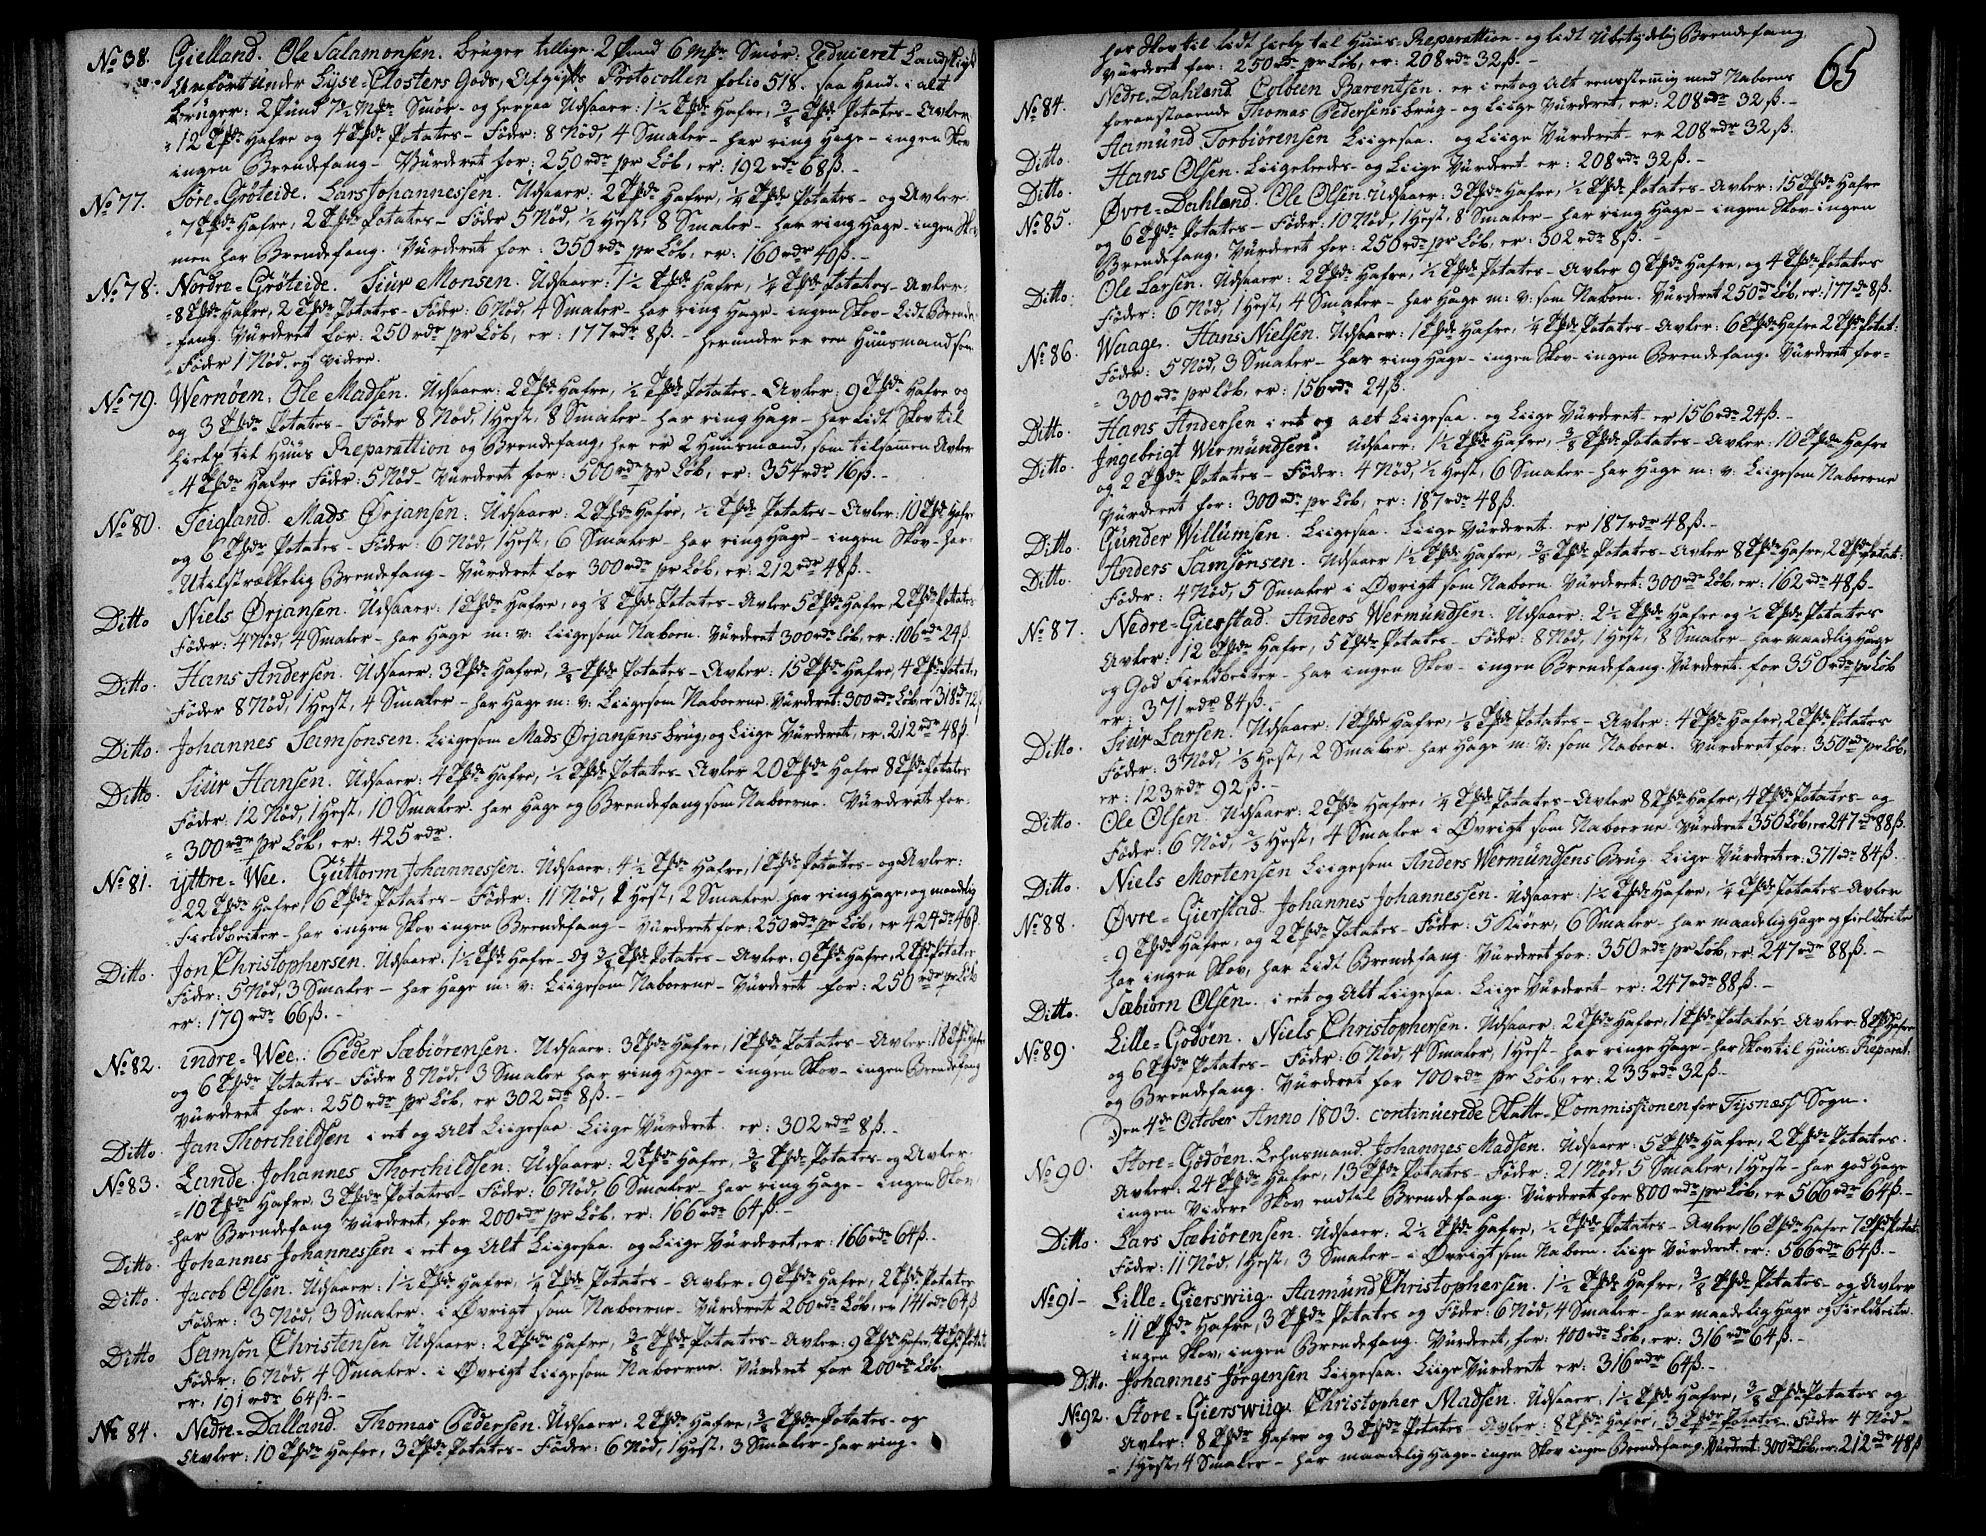 No 38. Gielland. Ole Salamonsen. bruger tillige 2 Pund 6 Mrk Smör. Reduceret Landskyld
Anført under Lyse Closters Gods, Afgifts Protocollen folio 518. saa Hand. i alt
bruger: 2 Pund 7½ Mrk Smör og herpaa Udsaaer: 1½ Tønde Hafre, ⅜ Tønde Potates - Avler
12 Tønde Hafre og 4 Tønde Potates - Föder: 8 Nöd, 4 Smaler - har ring Hage - ingen Skov
ingen Brendefang - Vürderet for: 250 rdr pr Löb, er: 192 rdr 68 ß. -
No 77. Søre-Gröteide. Lars Johannessen. Udsaaer: 2 Tønde Hafre, ¼ Tønde Potates - og Avler
7 Tønde Hafre, 2 Tønde Potates - Föder 5 Nöd, ½ Hest, 8 Smaler - har ring Hage - ingen Skov
men har Brendefang. Vürderet for: 350 rdr pr Löb, er: 160 rdr 40 ß. -
No 78. Nordre-Gröteide. Siur Monsen. Udsaaer: 1½ Tønde Hafre, ¼ Tønde Potates - Avler:
8 Tønde Hafre, 2 Tønde Potates - Föder: 6 Nöd, 4 Smaler - har ring Hage - ingen Skov - Lidt Brende-
fang. Vürderet for: 250 rdr pr Löb, er: 177 rdr 8 ß. - herunder er een Huusmand som
Föder 1 Nöd. ej videre.
No 79. Wernöen. Ole Madsen. Udsaaer: 2 Tønde Hafre, ½ Tønde Potates - Avler: 9 Tønde Hafre og
og 3 Tønde Potates - Föder 8 Nöd, 1 Hest, 8 Smaler - har ring Hage - har Lidt Skov til
hielp til Huus Reparattion og Brendefang, her er 2 Huusmænd, som tilsamen Avler
4 Tønde Hafre Föder: 5 Nöd - Vürderet for: 500 rdr pr Löb, er: 354 rdr 16 ß. -
No 80. Teigland. Mads Ørjansen: Udsaaer: 2 Tønde Hafre, ½ Tønde Potates - Avler: 10 Tønde Hafre
og 6 Tønde Potates - Föder: 6 Nöd, 1 Hest, 6 Smaler - har ring Hage - ingen Skov - har
Utilstrækkelig Brendefang - Vürderet for 300 rdr pr Löb, er: 212 rdr 48 ß. -
Ditto Niels Ørjansen. Udsaaer: 1 Tønde Hafre, og ⅛ Tønde Potates - Avler 5 Tønde Hafre, 2 Tønde Potates
Föder: 4 Nöd, 4 Smaler - har Hage m: v: Liigesom Naboen. Vürderet 300 rdr Löb, er: 106 rdr 24 ß.
Ditto. Hans Andersen. Udsaaer: 3 Tønde Hafre, ⅜ Tønde Potates - Avler: 15 Tønde Hafre, 4 Tønde Potates
Föder 8 Nöd, 1 Hest, 4 Smaler - har Hage m: v: Liigesom Naboerne. Vürderet: 300 rdr Löb, er 318 rdr 72 ß
Ditto. Johannes Samsonsen. Liigesom Mads Ørjansens brug, og Liige Vürderet, er: 212 rdr 48 ß.
Ditto. Siür Hansen. Udsaaer: 4 Tønde Hafre, ½ Tønde Potates - Avler 20 Tønde Hafre 8 Tønde Potates
Föder: 12 Nöd, 1 Hest, 10 Smaler. har Hage og Brendefang som Naboerne. Vürderet for:
300 rdr pr Löb, er: 425 rdr.
No 81. ijttre-Wee. Güttorm Johannessen. Udsaaer: 4½ Tønde Hafre, 1 Tønde Potates - og Avler:
22 Tønde Hafre, 6 Tønde Potates - Föder: 11 Nöd, 1 Hest, 2 Smaler har ring Hage, og maadelig
Fieldbeiter - har ingen Skov ingen Brendefang - Vürderet for: 250 rdr pr Löb, er 424 rdr 46 ß.
Ditto. Jon Christophersen. Udsaaer: 1½ Tønde Hafre - Og ⅜ Tønde Potates - Avler: 9 Tønde Hafre, 2 Tønde Potates
Föder: 5 Nöd, 3 Smaler - har Hage m: v: Liigesom Naboerne - Vürderet for: 250 rdr pr Löb
er: 179 rdr 66 ß. -
No 82. indre-Wee. Peder Sæbiörensen. Udsaaer: 3 Tønde Hafre, 1 Tønde Potates - Avler: 18 Tønde Hafre
og 6 Tønde Potates - Föder 8 Nöd, 3 Smaler har ring Hage - ingen Skov - ingen Brendefang
vürderet for: 250 rdr pr Löb, er 302 rdr 8 ß. -
Ditto. Jan Thorchildsen i eet og Alt Liigesaa. Liige Vürderet. er: 302 rdr 8 ß. -
No 83. Lande. Johannes Thorchildsen. Udsaaer: 2 Tønde Hafre, ⅜ Tønde Potates - og Avler
10 Tønde Hafre, 3 Tønde Potates - Föder: 6 Nöd, 6 Smaler - har ring Hage - ingen Skov,
har Brendefang Vürderet, for 200 rdr pr Löb, er: 166 rdr 64 ß. -
Ditto. Johannes Johannessen i eet og Alt Liigesaa. og Liige Vürderet, er: 166 rdr 64 ß. -
Ditto. Jacob Olsen. Udsaaer: 1½ Tønde Hafre, ¼ Tønde Potates - Avler = 9 Tønde Hafre, 2 Tønde Potates
Föder: 3 Nöd, 3 Smaler. i Øvrigt som Naboerne - Vürderet 200 rdr Löb, er 141 rdr 64 ß
Ditto Samson Christensen Udsaaer: 2 Tønde Hafre, ⅜ Tønde Potates - Avler: 9 Tønde Hafre 4 Tønde Potates
Föder: 6 Nöd, 4 Smaler. i Øvrigt Liigesom Naboerne. Vürderet for 200 rdr Löb
er: 191 rdr 64 ß. -
No 84. Nedre-Dalland. Thomas Pedersen. Udsaaer: 2 Tønde Hafre, ⅜ Tønde Potates - og
Avler: 10 Tønde Hafre, 3 Tønde Potates - Föder: 6 Nöd, 1 Hest, 3 Smaler - har ring-
65
har Skov til lidt hielp til Huus Reparattion - og lidt Ubetydelig Brendefang.
Vürderet for: 250 rdr pr Löb, er: 208 rdr 32 ß. -
No 84. Nedre-Dahland Colbeen Bærentsen. er i eet og Alt eensstemig med Naboens
foranstaaende Thomas Pedersens brug - og Liige Vürderet, er: 208 rdr 32 ß. -
Ditto. Aamund Torbiörensen Liigesaa. og Liige Vürderet - er 208 rdr 32 ß.
Ditto Hans Olsen. Liigeledes - og Liige Vürderet. er: 208 rdr 32 ß. -
No 85. Øvre-Dahland. Ole Olsen. Udsaaer: 3 Tønde Hafre, ½ Tønde Potates - Avler: 15 Tønde Hafre
og 6 Tønde Potates - Föder: 10 Nöd, 1 Hest, 8 Smaler - har ring Hage - ingen Skov - ingen
Brendefang. Vürderet for: 250 rdr pr Löb, er: 302 rdr 8 ß. -
Ditto. Ole Larsen. Udsaaer: 2 Tønde Hafre, ½ Tønde Potates - Avler 9 Tønde Hafre, og 4 Tønde Potates
Föder: 6 Nöd, 1 Hest, 4 Smaler - har Hage m: v: som Naboen. Vürderet 250 rdr Löb, er: 177 rdr 8 ß.
No 86. Waage. Hans Nielsen. Udsaaer: 1 Tønde Hafre, ¼ Tønde Potates - Avler: 6 Tønde Hafre 2 Tønde Potat:
Föder: 5 Nöd, 3 Smaler - har ring Hage - ingen Skov - ingen Brendefang. Vürderet for-
300 rdr pr Löb, er: 156 rdr 24 ß.
Ditto. Hans Andersen i eet og alt Liigesaa. og Liige Vürderet er 156 rdr 24 ß. -
Ditto. Ingebrigt Wermündsen. Udsaaer: 1½ Tønde Hafre, ⅜ Tønde Potates - Avler: 10 Tønde Hafre
og 2 Tønde Potates - Föder: 4 Nöd, ½ Hest, 6 Smaler - har Hage m: v: Liigesom Naboerne
Vürderet for: 300 rdr pr Löb, er: 187 rdr 48 ß.
Ditto. Günder Willümsen. Liigesaa. Liige Vürderet. er 187 rdr 48 ß. -
Ditto. Anders Samsonsen. Udsaaer 1½ Tønde Hafre, ⅜ Tønde Potates - Avler 8 Tønde Hafre, 2 Tønde Potat:
Föder: 4 Nöd, 5 Smaler i Øvrigt som Naboen. Vürderet: 300 rdr Löb, er: 162 rdr 48 ß -
No 87. Nedre-Gierstad. Anders Wermündsen. Udsaaer: 2½ Tønde Hafre og ½ Tønde Potates
Avler: 12 Tønde Hafre, 5 Tønde Potates - Föder: 8 Nöd, 1 Hest, 8 Smaler - har maadelig Hage
og God Fieldbeiter - har ingen Skov - ingen Brendefang. Vürderet for 350 rdr pr Löb
er: 371 rdr 84 ß. -
Ditto. Siur Larsen. Udsaaer: 1 Tønde Hafre, ⅛ Tønde Potates - Avler: 4 Tønde Hafre, 2 Tønde Potates
Föder: 3 Nöd, ⅓ Hest, 2 Smaler. har Hage m: v: som Naboer. Vürderet for: 350 rdr pr Löb,
er: 123 rdr 92 ß. -
Ditto. Ole Olsen. Udsaaer: 2 Tønde Hafre, ¼ Tønde Potates - Avler 8 Tønde Hafre, 4 Tønde Potates - og
Föder: 6 Nöd, ⅔ Hest, 4 Smaler i Øvrigt som Naboerne. Vürderet 350 Löb, er 247 rdr 88 ß.
Ditto. Niels Mortensen Liigesom Anders Wermündsens Brug. Liige Vürderet er: 371 rdr 84 ß. -
No 88. Øvre-Gierstad. Johannes Johannessen. Udsaaer: 1½ Tønde Hafre, ¼ Tønde Potates - Avler
9 Tønde Hafre, og 2 Tønde Potates - Föder: 5 Kiöer, 6 Smaler - har maadelig Hage og fieldbeite
har ingen Skov, har Lidt Brendefang Vürderet for: 350 rdr pr Löb, er: 247 rdr 88 ß. -
Ditto. Sæbiörn Olsen. i eet og Alt Liigesaa. Liige Vürderet - er: 247 rdr 88 ß. -
No 89. Lille-Godöen. Niels Christophersen. Udsaaer: 2 Tønde Hafre, 1 Tønde Potates - Avler 8 Tønde Hafre
og 6 Tønde Potates - Föder: 6 Nöd, 4 Smaler, 1 Hest - har ringe Hage - har Skov til Huus-Reparat.
og Brendefang. Vürderet for 700 rdr pr Löb, er: 233 rdr 32 ß. -
Den 4de October Anno 1803. continuerede Skatte-Commissionen for Tijsnæss Sogn.
No 90. Store-Godöen. Lehnsmand Johannes Madsen. Udsaaer: 5 Tønde Hafre, 2 Tønde Potates.
Avler: 24 Tønde Hafre, 13 Tønde Potates - Föder: 21 Nöd, 5 Smaler, 1 Hest - har god Hage
ingen Videre Skov end til Brendefang. Vürderet for 800 rdr pr Löb, er 566 rdr 64 ß. -
Ditto. Lars Sæbiörensen. Udsaaer: 2½ Tønde Hafre, ½ Tønde Potates - Avler 16 Tønde Hafre 7 Tønde Potat:
Föder: 11 Nöd, 1 Hest, 3 Smaler - i Øvrigt som Naboen. liige Vürderet er: 566 rdr 64 ß. -
No 91 - Lille-Gierswiig. Aamünd Christophersen. 1½ Tønde Hafre, ⅜ Tønde Potates - og Avler
11 Tønde Hafre, 3 Tønde Potates og Föder: 6 Nöd, 4 Smaler - har maadelig Hage og Fieldbeite
ingen Skov, ingen Brendefang. Vürderet, for: 400 rdr Löb, er: 316 rdr 64 ß. -
Ditto. Johannes Jörgensen Liigesaa. Liige Vürderet er: 316 rdr 64 ß. -
No 92. Store-Gierswiig. Christopher Madsen. Udsaaer, 1½ Tønde Hafre, ⅜ Tønde Potates og
Avler: 8 Tønde Hafre og 3 Tønde Potates - Avler: 8 Tønde Hafre, 3 Tønde Potates. Föder 4 Nöd -
1 Hest, 4 Smaler - har maadelig Hage - ingen Skov ingen Brendefang, Vürderet: 300 rdr Löb, er: 212 rdr 48 ß